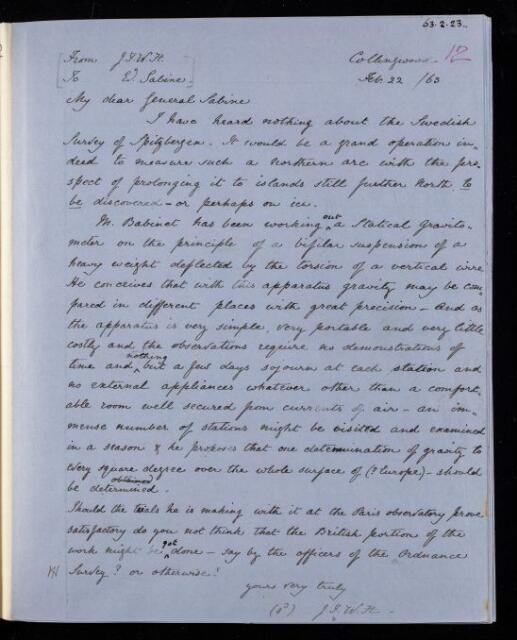 63.2.23.
From J.F.W.H. Collingwood 12
To E. Sabine Feb. 22 /63
My dear General Sabine
I have heard nothing about the Swedish
Survey of Spitzbergen. It would be a grand operation in-
deed to measure such a Northern arc with the pro-
spect of prolonging it to islands still further North to
be discovered - or perhaps on ice.
M. Babinet has been working out a Statical gravito-
meter on the principle of a bifilar suspension of a
heavy weight deflected by the torsion of a vertical wire
He conceives that with this apparatus gravity may be com-
pared in different places with great precision - And as
the apparatus is very simple, very portable and very little
costly and the observations require no demonstrations of
time and nothing but a few days sojourn at each station and
no external appliances whatever other than a comfort-
able room well secured from currents of air - an im-
mense number of stations might be visited and examined
in a season & he proposes that one determination of gravity to
every square degree over the whole surface of (? Europe) - should
be determined. obtained
Should the trials he is making with it at the Paris observatory prove
satisfactory do you not think that the British portion of the
work might be got done - say by the officers of the Ordnance
Survey? or otherwise?
yours very truly
J.F.W.H.